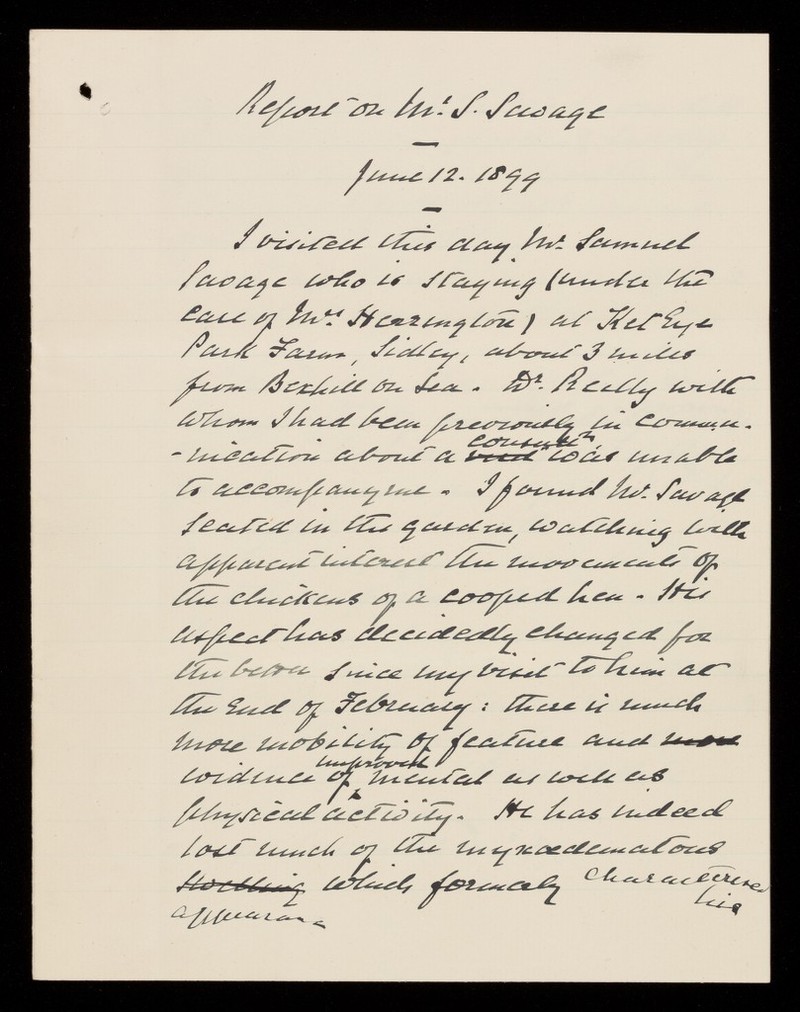 Report on Mr. S. Savage
June 12. 1899
I visited this day Mr. Samuel
Savage who is staying (under the
care of Mrs Herrington) at Ket Eye
Park Farm, Sidley, about 3 miles
from Bexhill on Sea. Dr. Reilly with
whom I had been previously in commu-
-nication about a consultn was unable
to accompany me. I found Mr. Savage
seated in the garden, watching with
apparent interest the movements of
the chickens of a cooped hen. His
aspect has decidedly changed for
the better since my visit to him at
the end of February: there is much
more mobility of feature and more
evidence of improved mental as well as
physical activity. He has indeed
lost much of the myxoedematous
swelling which formerly characterised
his
appearance